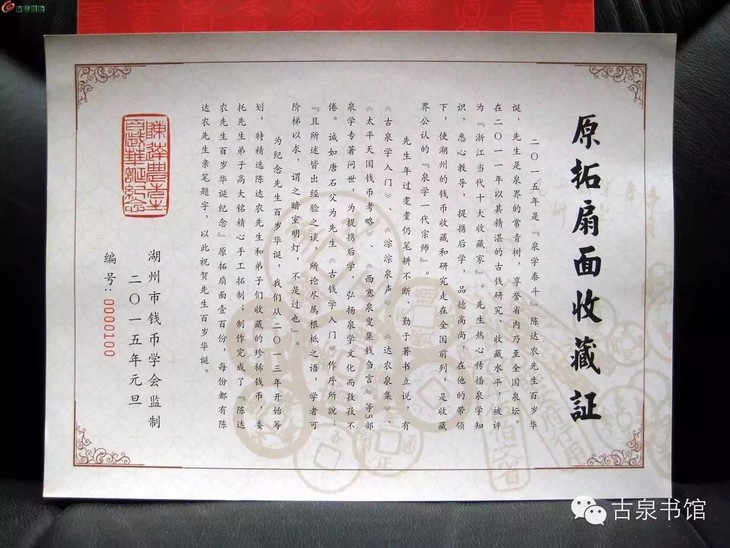 原拓扇面收藏証
二〇一五年是『泉学泰斗』陈达农先生百岁华
诞，先生是泉界的常青树，享誉省内乃至全国泉坛。
在二〇一一年以其精湛的古钱研究、收藏水平，被评
为『浙江当代十大收藏家』。先生热心传播泉学知
识，悉心教导，提携后学，品德高尚。在他的带领
下，使湖州的钱币收藏和研究走在全国前列，是收藏
界公认的『泉学一代宗师』。
先生年过耄耋仍笔耕不断，勤于著书立说，有
《古泉学入门》、《淙淙泉声》、《达农泉集》、
《太平天国钱币考略》、《西塞泉叟集钱刍言》等5部
泉学专著问世，为提携后学、弘扬泉学文化而孜孜不
倦。诚如唐石父为先生《古钱学入门》作序所说：
『且所述皆出经验之谈，所论尽属根柢之语，学者可
阶梯以求，谓之暗室明灯，不是过也』。
为纪念先生百岁华诞，我们从二〇一三年开始筹
划，特精选陈达农先生和弟子们收藏的珍稀钱币，委
托先生弟子高大铭精心手工拓制；制作完成了『陈达
农先生百岁华诞纪念』原拓扇面壹百份，每份都有陈
达农先生亲笔题字，以此祝贺先生百岁华诞。
湖州市钱币学会监制
二〇一五年元旦
编号：0000100
古泉书馆